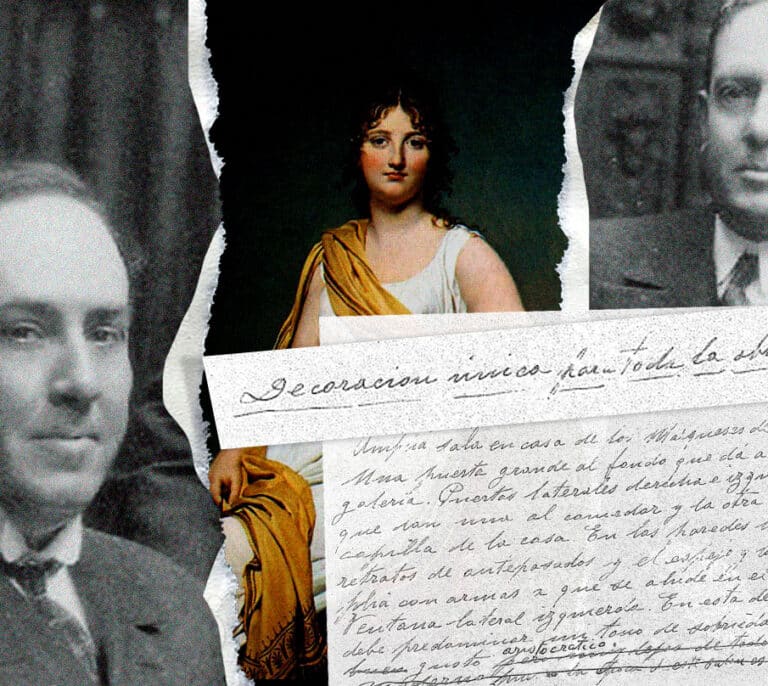 Decoracion unica para toda la
Amplia sala en casa de los Marqueses de
Una puerta grande al fondo que dá a
galeria. Puertas laterales derecha e
que van una al comedor y la otra
capilla de la casa. En las paredes
retratos de antepasados y el espejo y
con armas a que se alude en
Ventana lateral izquierda. En esta
debe predominar un tono de
aristocratico.
buen gusto